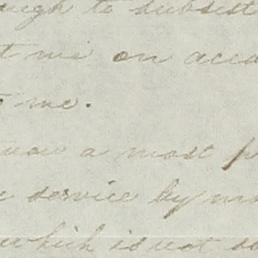 to subsist
me on acco
me.
now a most p
service by m
which is not so